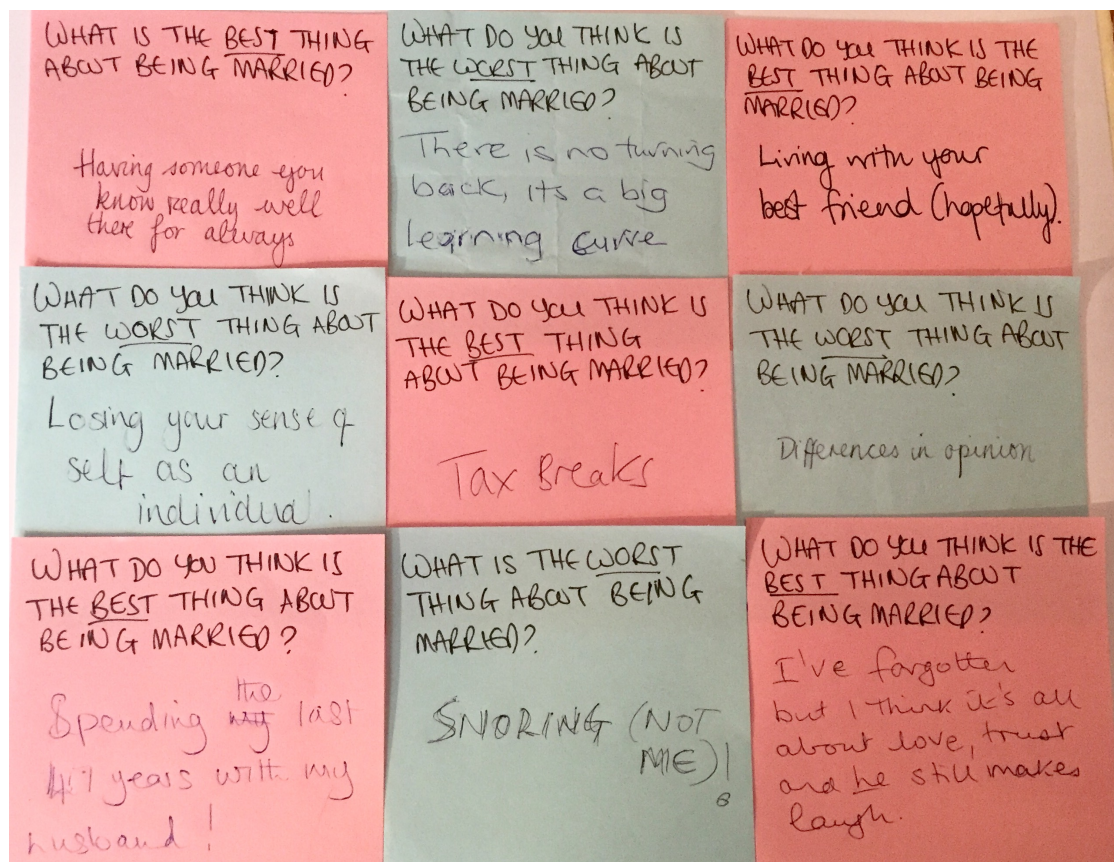 WHAT IS THE BEST THING
ABOUT BEING MARRIED?
Having someone you
know really well
there for always
WHAT DO YOU THINK IS
THE WORST THING ABOUT
BEING MARRIED?
There is no turning
back, its a big
learning curve
WHAT DO YOU THINK IS THE
BEST THING ABOUT BEING
MARRIED?
Living with your
best friend (hopefully).
WHAT DO YOU THINK IS
THE WORST THING ABOUT
BEING MARRIED?
Losing your sense of
self as an
individual.
WHAT DO YOU THINK IS
THE BEST THING
ABOUT BEING MARRIED?
Tax Breaks
WHAT DO YOU THINK IS
THE WORST THING ABOUT
BEING MARRIED?
Differences in opinion
WHAT DO YOU THINK IS
THE BEST THING ABOUT
BEING MARRIED?
the
Spending my last
47 years with my
husband!
WHAT IS THE WORST
THING ABOUT BEING
MARRIED?
SNORING (NOT
ME)!
WHAT DO YOU THINK IS THE
BEST THING ABOUT
BEING MARRIED?
I've forgotten
but I think it's all
about love, trust
and he still makes
laugh.